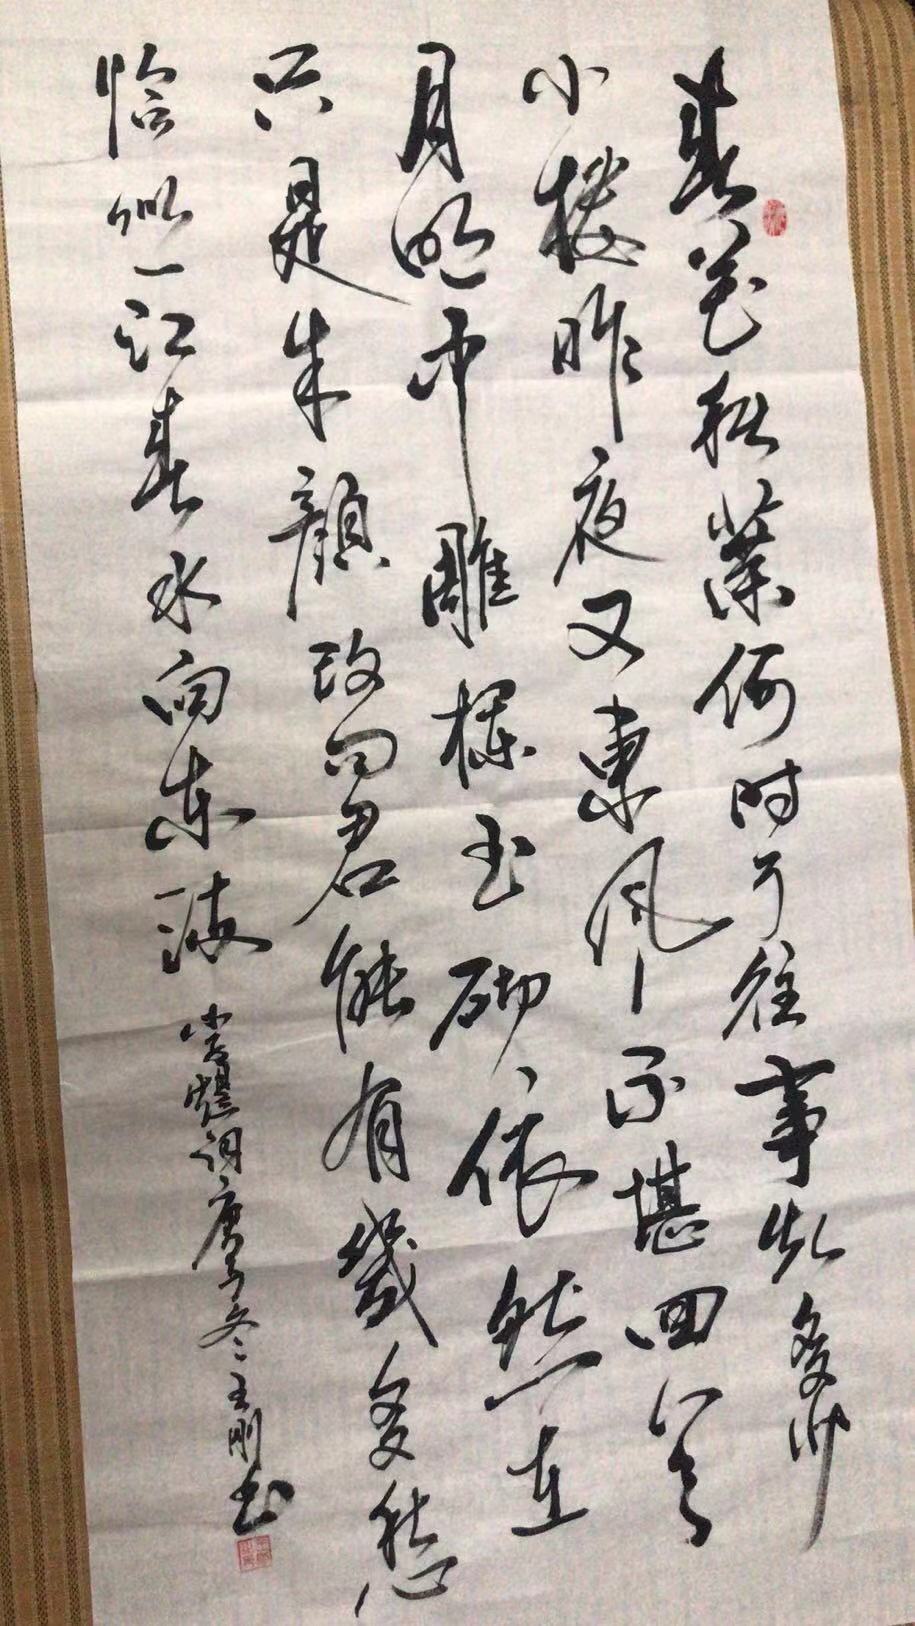 春花秋葉何时了往事知多少
小楼昨夜又東風不堪回首
月明中雕栏玉砌依然在
只是朱顏改问君能有幾多愁
恰似一江春水向东流
李煜词庚子冬王刚书